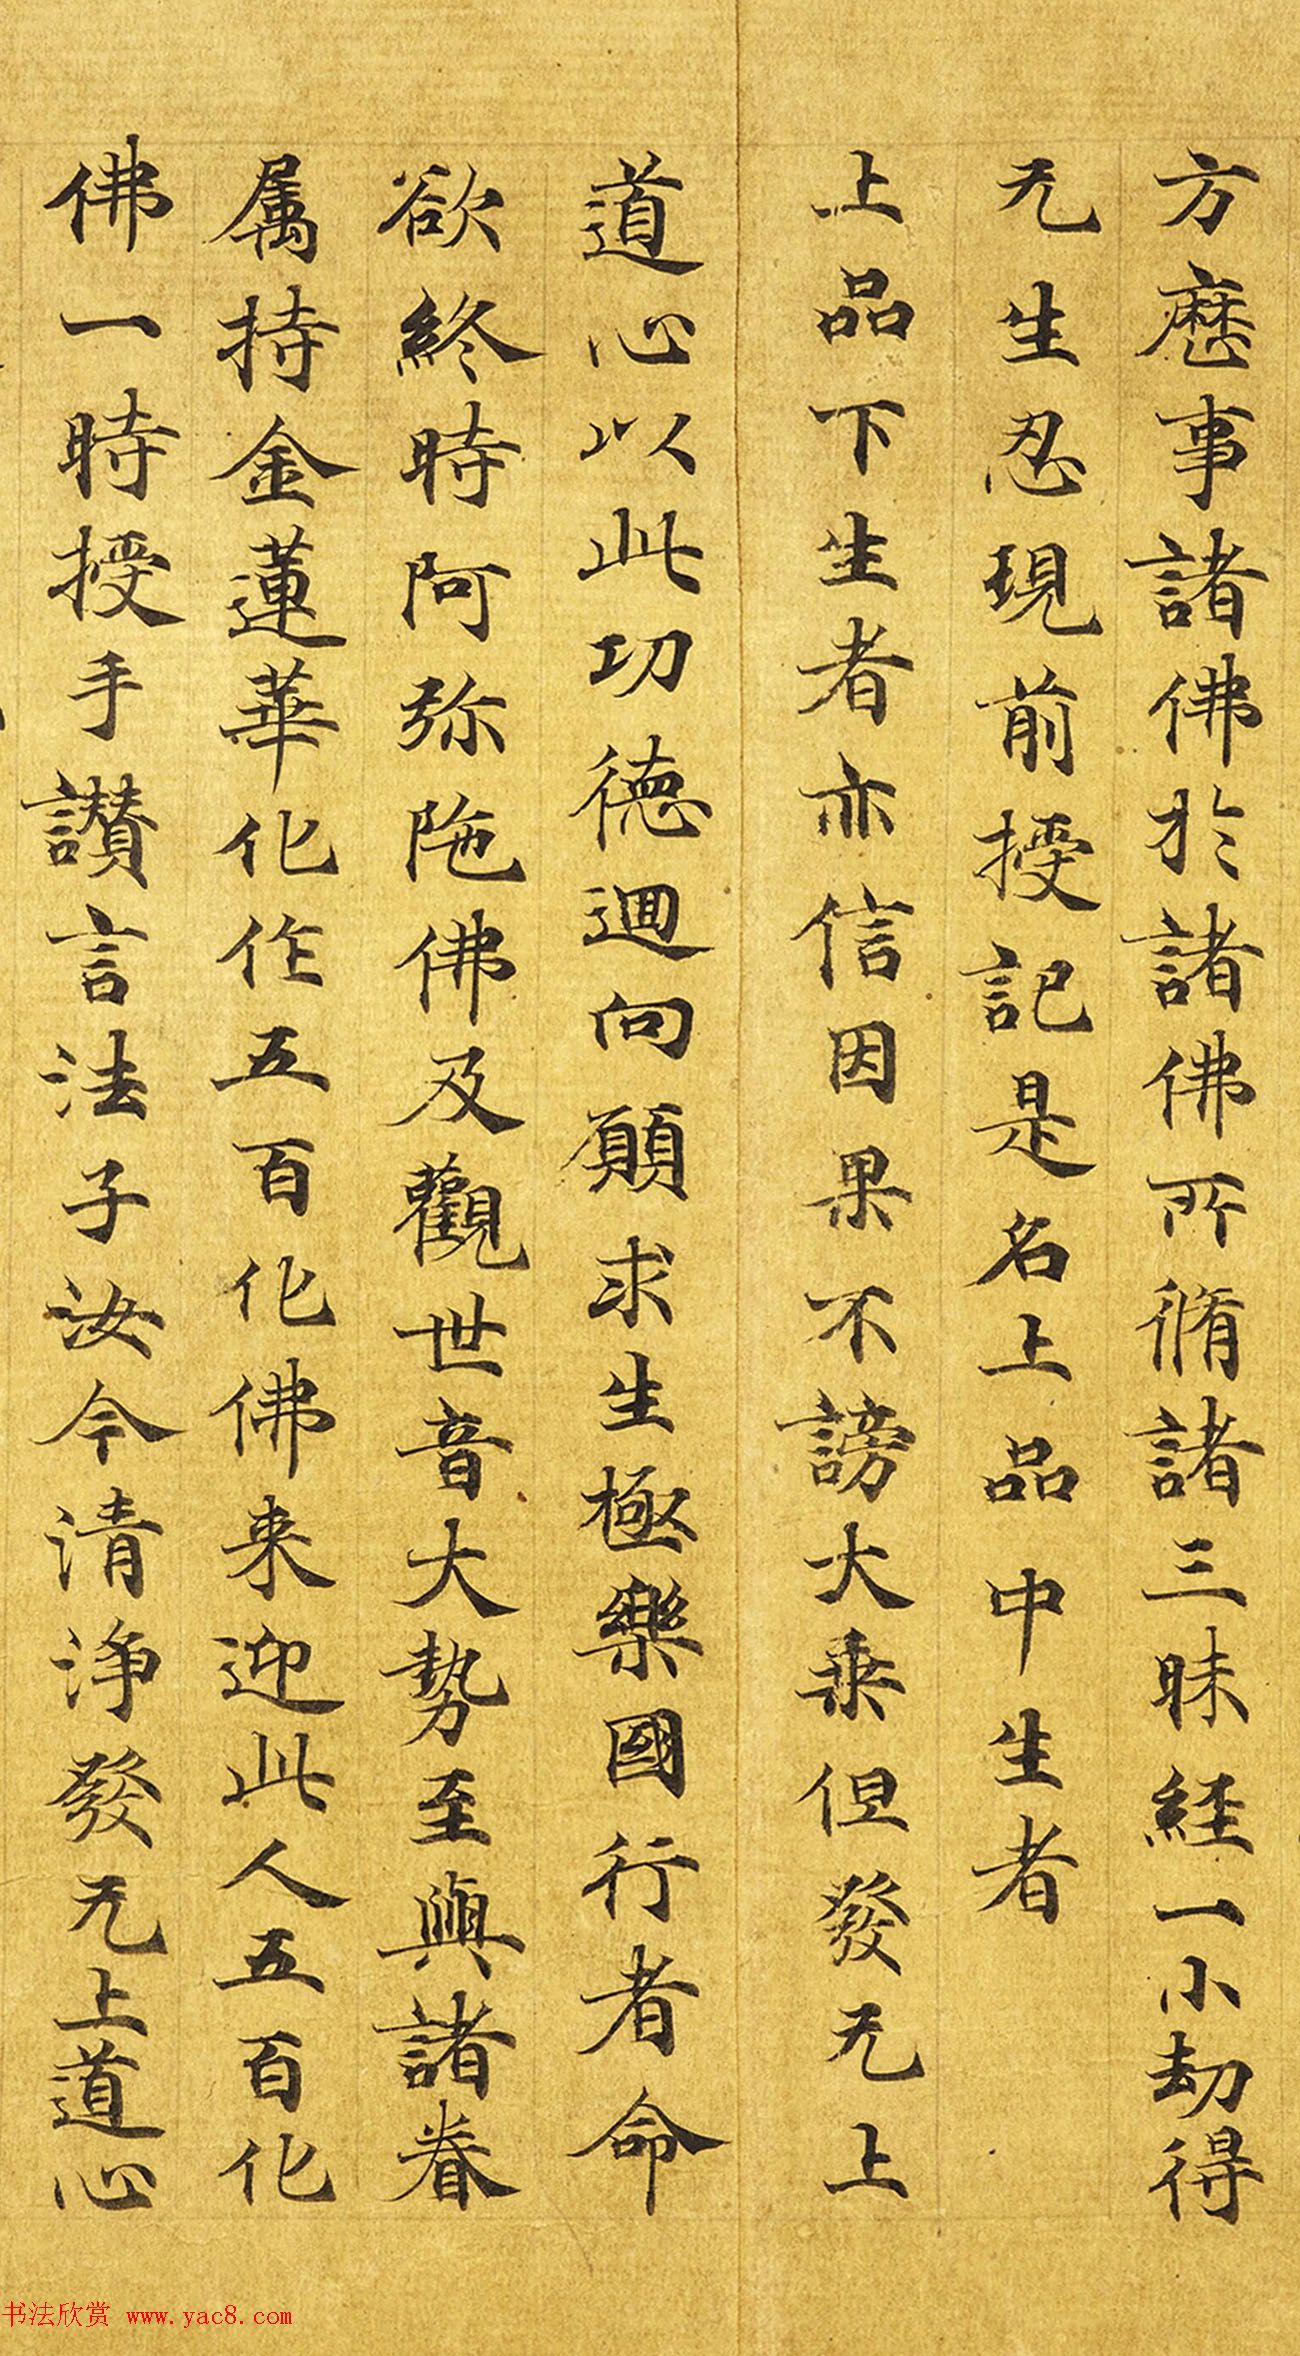 方歷事諸佛於諸佛所脩諸三昧經一小劫得
无生忍現前授記是名上品中生者
上品下生者亦信因果不謗大乘但發无上
道心以此功德迴向願求生極樂國行者命
欲終時阿弥陁佛及觀世音大勢至與諸眷
属持金蓮華化作五百化佛来迎此人五百化
佛一時授手讃言法子汝今清浄發无上道心
书法欣赏 www.yac8.com